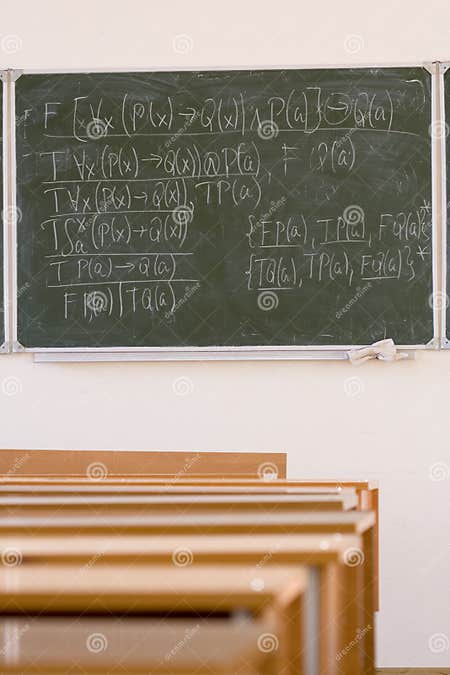 F [∀x (P(x) → Q(x)) ∧ P(a)] → Q(a)
T ∀x (P(x) → Q(x)) @ P(a), F Q(a)
T ∀x (P(x) → Q(x)), T P(a)
T S^x_a (P(x) → Q(x))
T P(a) → Q(a)
F P(a) | T Q(a)
{F P(a), T P(a), F Q(a)}*
{T Q(a), T P(a), F Q(a)}*
dreamstime